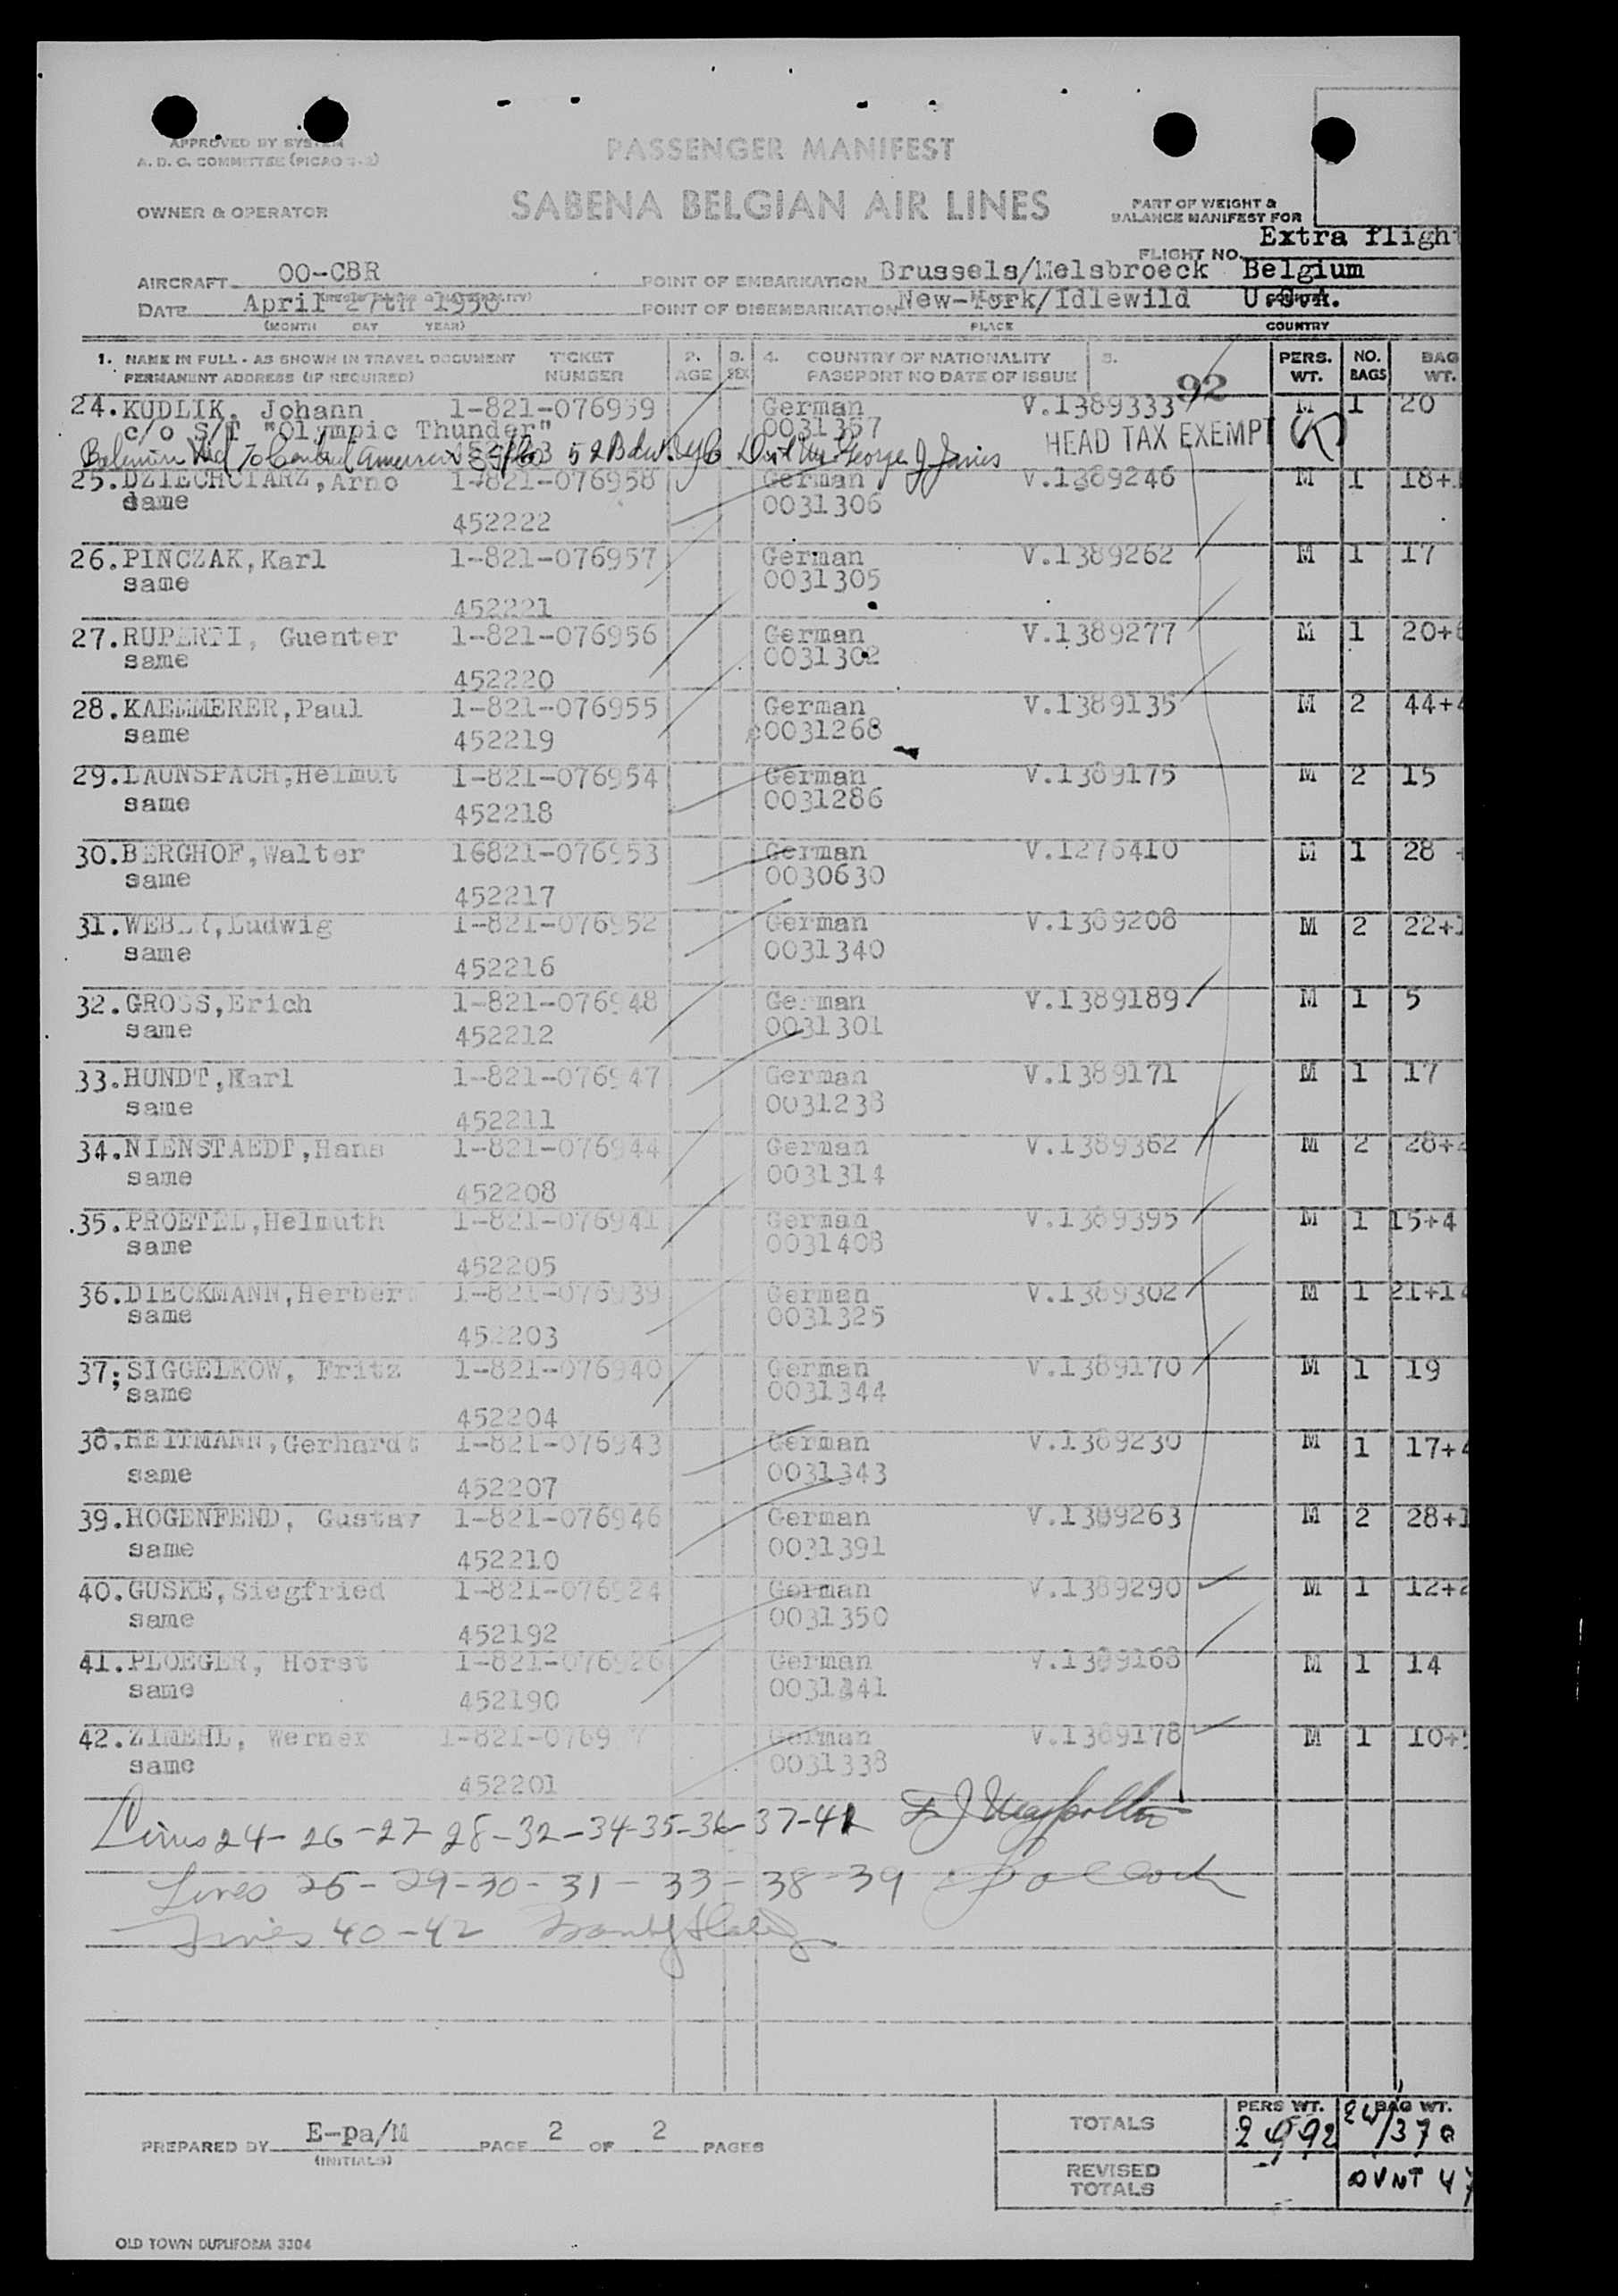 APPROVED BY SYSTEM
A. D. C. COMMITTEE (PICAO
PASSENGER MANIFEST
OWNER & OPERATOR
SABENA BELGIAN AIR LINES
PART OF WEIGHT &
BALANCE MANIFEST FOR
FLIGHT NO. Extra flight
AIRCRAFT OO-CBR
POINT OF EMBARKATION Brussels/Melsbroeck Belgium
DATE April 27th 1950
POINT OF DISEMBARKATION New-York/Idlewild U.S.A.
(MONTH DAY YEAR)
PLACE COUNTRY
1. NAME IN FULL - AS SHOWN IN TRAVEL DOCUMENT TICKET 2. 3. 4. COUNTRY OF NATIONALITY 5. PERS. NO. BAG
PERMANENT ADDRESS (IF REQUIRED) NUMBER AGE SEX PASSPORT NO DATE OF ISSUE WT. BAGS WT.
92
24. KUDLIK, Johann 1-821-076959 German V.1389333 M 1 20
c/o S/T "Olympic Thunder" 0031357 HEAD TAX EXEMPT
25. DZIECHCIARZ, Arno 1-821-076958 German V.1389246 M 1 18+
same 0031306
452222
26. PINCZAK, Karl 1-821-076957 German V.1389262 M 1 17
same 0031305
452221
27. RUPERTI, Guenter 1-821-076956 German V.1389277 M 1 20+
same 0031302
452220
28. KAEMMERER, Paul 1-821-076955 German V.1389135 M 2 44+
same 452219 0031268
29. LAUNSPACH, Helmut 1-821-076954 German V.1389175 M 2 15
same 452218 0031286
30. BERGHOF, Walter 16821-076953 German V.1276410 M 1 28 +
same 0030630
452217
31. WEBER, Ludwig 1-821-076952 German V.1389208 M 2 22+
same 0031340
452216
32. GROSS, Erich 1-821-076948 German V.1389189. M 1 5
same 452212 0031301
33. HUNDT, Karl 1-821-076947 German V.1389171 M 1 17
same 0031238
452211
34. NIENSTAEDT, Hans 1-821-076944 German V.1389362 M 2 28+
same 0031314
452208
35. PROETEL, Helmuth 1-821-076941 German V.1389395 M 1 15+4
same 0031408
452205
36. DIECKMANN, Herbert 1-821-076939 German V.1389302 M 1 21+1
same 0031325
452203
37; SIGGELKOW, Fritz 1-821-076940 German V.1389170 M 1 19
same 0031344
452204
38. HEITMANN, Gerhardt 1-821-076943 German V.1389230 M 1 17+
same 0031343
452207
39. HOGENFEND, Gustav 1-821-076946 German V.1389263 M 2 28+
same 0031391
452210
40. GUSKE, Siegfried 1-821-076924 German V.1389290 M 1 12+
same 0031350
452192
41. PLOEGER, Horst 1-821-076926 German V.1389168 M 1 14
same
452190
42. ZIMEHL, Werner 1-821-0769 7 German V.1389178 M 1 10+
same 0031338
452201
Lines 24 - 26 - 27 - 28 - 32 - 34 - 35 - 36 - 37 - 41
Lines 25 - 29 - 30 - 31 - 33 - 38 - 39
Lines 40 - 42
PREPARED BY E-pa/M PAGE 2 OF 2 PAGES
(INITIALS)
TOTALS PERS WT. BAG WT.
REVISED
TOTALS
OLD TOWN DUPLIFORM 3304